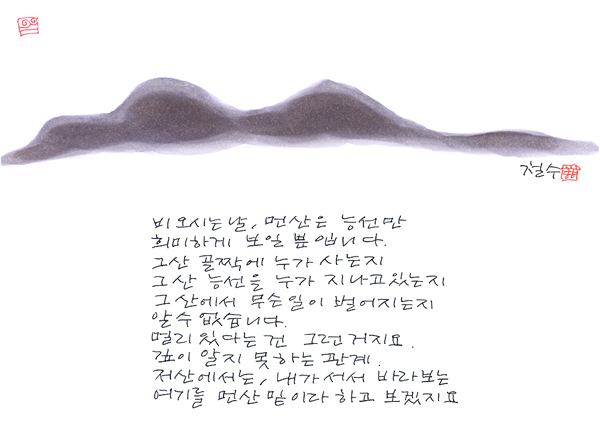 철수
비 오시는 날, 먼산은 능선만
희미하게 보일 뿐입니다.
그 산 골짝에 누가 사는지
그 산 능선을 누가 지나고 있는지
그 산에서 무슨 일이 벌어지는지
알 수 없습니다.
멀리 있다는 건 그런 거지요.
깊이 알지 못하는 관계.
저 산에서는, 내가 서서 바라보는
여기를 먼산 밑이라 하고 보겠지요